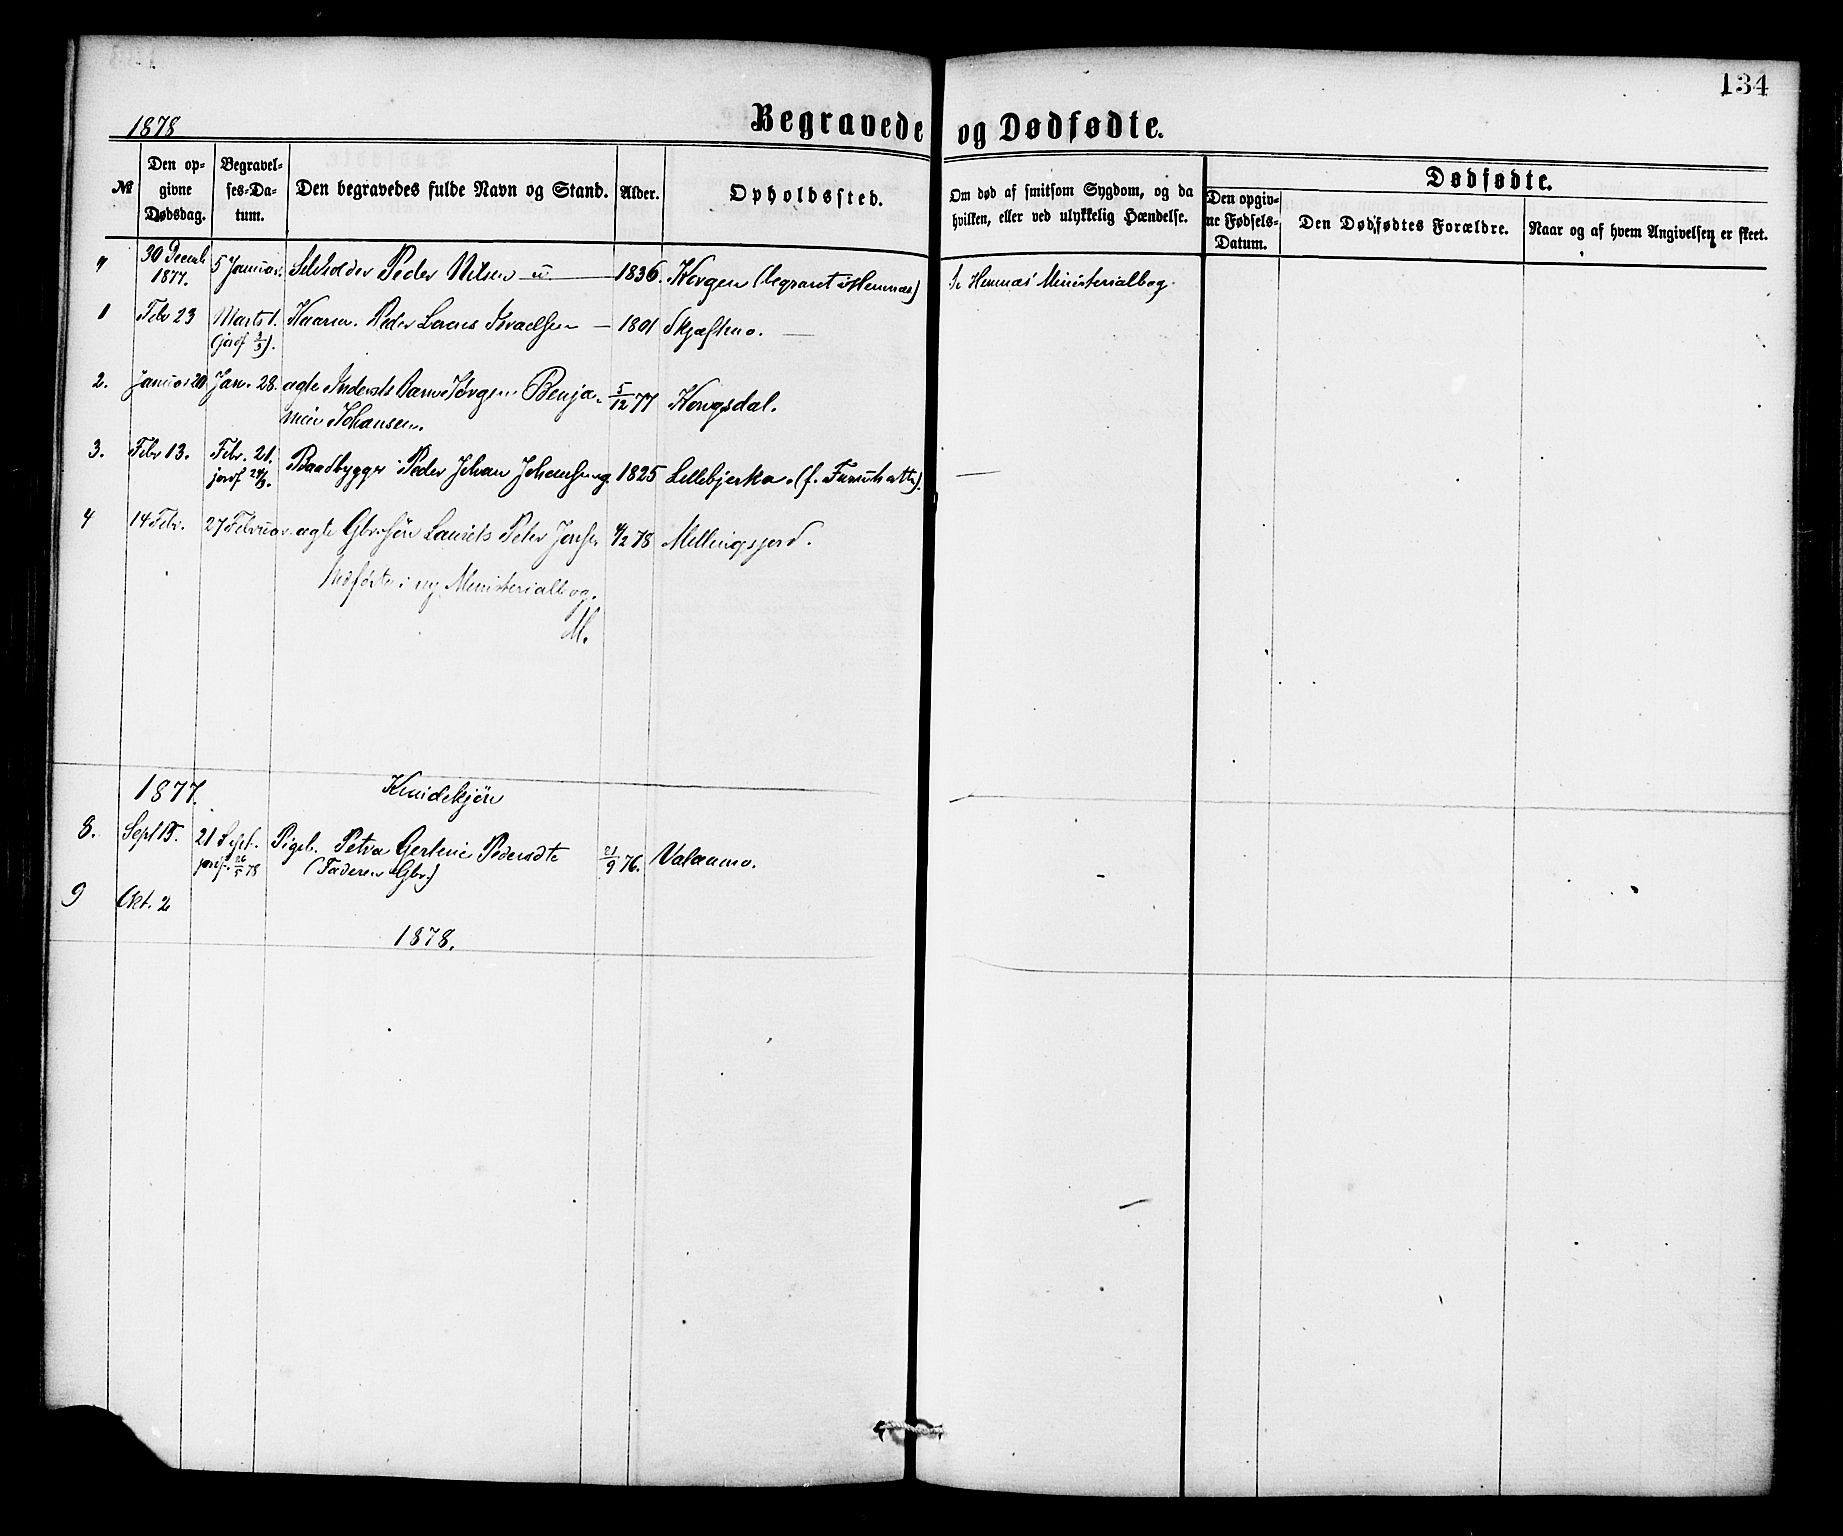 134
1878
Begravede og Dødfødte.
№
Den opgivne Dødsdag.
Begravelses-Datum.
Den begravedes fulde Navn og Stand.
Alder.
Opholdssted.
Om død af smitsom Sygdom, og da hvilken, eller ved ulykkelig Hændelse.
Dødfødte.
Den opgivne Fødsels-Datum.
Den Dødfødtes Forældre.
Naar og af hvem Angivelsen er skeet.
30 Decemb. 5 Januar. Selveier Peder Nilsen u. 1836. Korgen (begravet i Hemnæs) Hemnæs Ministerialbog.
1877.
1 Febr 23 Marts 1. Kaarm. Peder Lorens Israelsen — 1801 Skjæfthmo. —
(jordf 3/3).
2. Januar 20 Jan. 28. ægte Inderstb Barn Jørgen Benja- 5/12 77 Kongsdal.
min Johansen.
3. Febr 13. Febr. 21. Baadbygger Peder Johan 1825 Lillebjerka. (f. )
jordf 24/3.
4 14 Febr. 27 Februar. ægte Gbrsøn Laurits Peter 4/2 78 Mellingsjord.
Indførte i ny Ministerialbog.
M.
1877.
8. Sept 15. 21 Sept. Pigeb. Petra Gertine Pedersdtr 21/9 76. Valaamo.
jordf. 26/5 78 (Faderen Gbr.)
9 Okt. 2
1878.